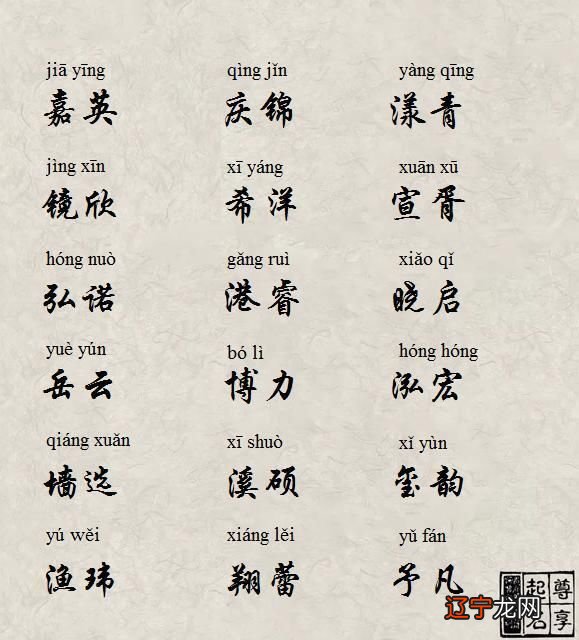 jiā yīng qìng jǐn yàng qīng
嘉英 庆锦 漾青
jìng xīn xī yáng xuān xū
镜欣 希洋 宣胥
hóng nuò gǎng ruì xiǎo qǐ
弘诺 港睿 晓启
yuè yún bó lì hóng hóng
岳云 博力 泓宏
qiáng xuǎn xī shuò xǐ yùn
墙选 溪硕 玺韵
yú wěi xiáng lěi yǔ fán
渔玮 翔蕾 予凡
尊享
起名
辽宁龙网